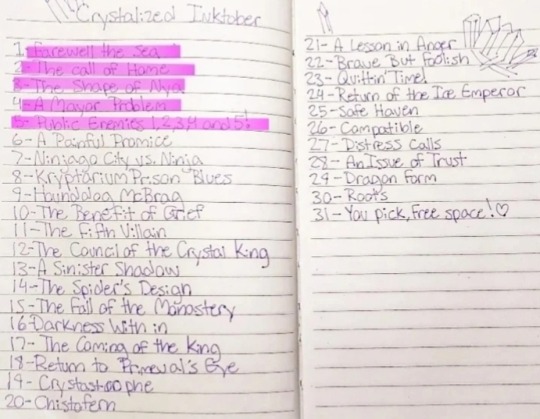 Crystalized Inktober
1- Farewell the Sea
2- The call of Home
3- The Shape of Nya
4- A Mayor Problem
5- Public Enemies 1,2,3,4 and 5!
6- A Painful Promice
7- Ninjago City vs. Ninja
8- Kryptarium Prison Blues
9- Hounddog McBrag
10- The Benefit of Grief
11- The Fifth Villain
12- The Council of the Crystal King
13- A Sinister Shadow
14- The Spider's Design
15- The Fall of the Monastery
16- Darkness With in
17- The Coming of the King
18- Return to Primeval's Eye
19- Crystastrophe
20- Christofern
21- A Lesson in Anger
22- Brave But Foolish
23- Quittin' Time!
24- Return of the Ice Emperor
25- Safe Haven
26- Compatible
27- Distress Calls
28- An Issue of Trust
29- Dragon Form
30- Roots
31- You pick, Free space! ♡